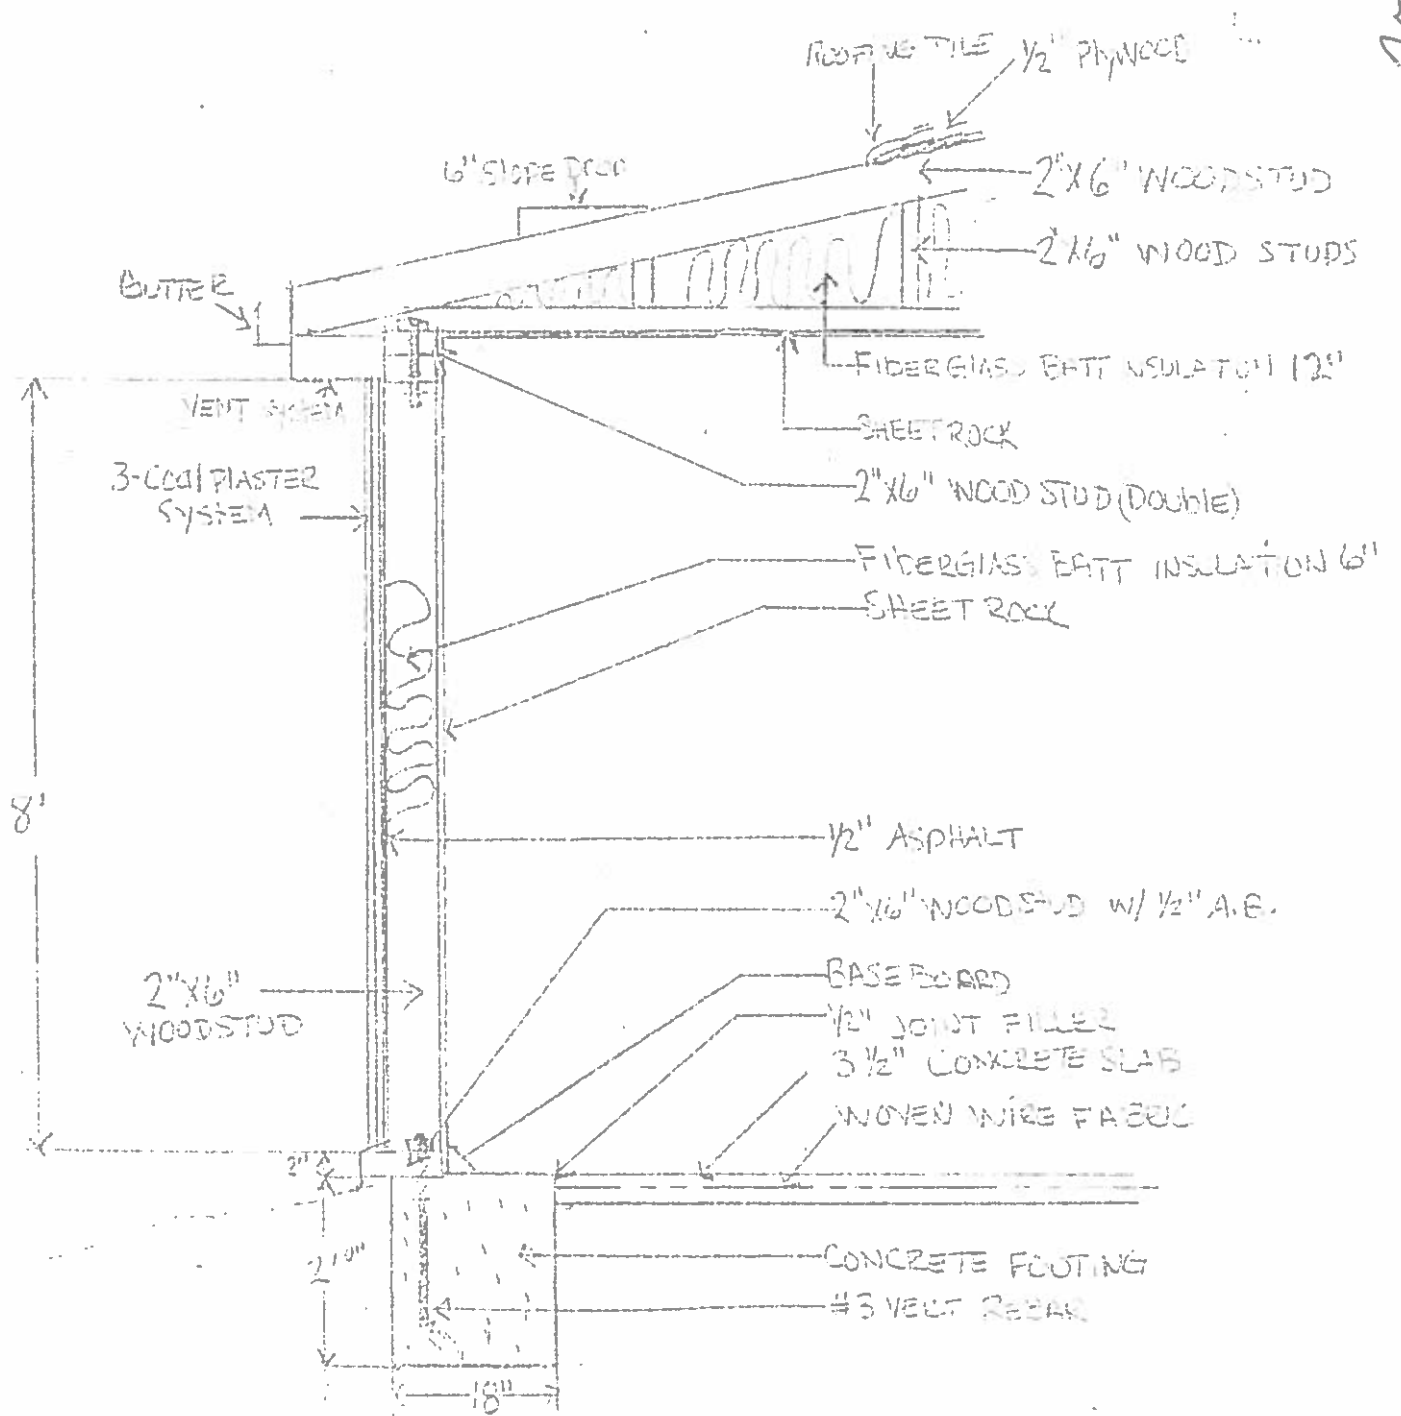 ROOFING TILE
1/2" PLYWOOD
6" SLOPE DROP
2"X6" WOODSTUD
2"X6" WOOD STUDS
GUTTER
FIBERGLASS BATT INSULATION 12"
VENT SYSTEM
SHEETROCK
3-COAT PLASTER
SYSTEM
2"X6" WOOD STUD (DOUBLE)
FIBERGLASS BATT INSULATION 6"
SHEET ROCK
8'
1/2" ASPHALT
2"X6" WOODSTUD W/ 1/2" A.B.
2"X6"
WOODSTUD
BASEBOARD
1/2" JOINT FILLER
3 1/2" CONCRETE SLAB
WOVEN WIRE FABRIC
2"
2'0"
CONCRETE FOOTING
#3 VERT REBAR
18"